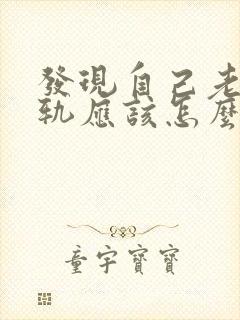 發現自己老
軌應該怎麼
童宇寶寶